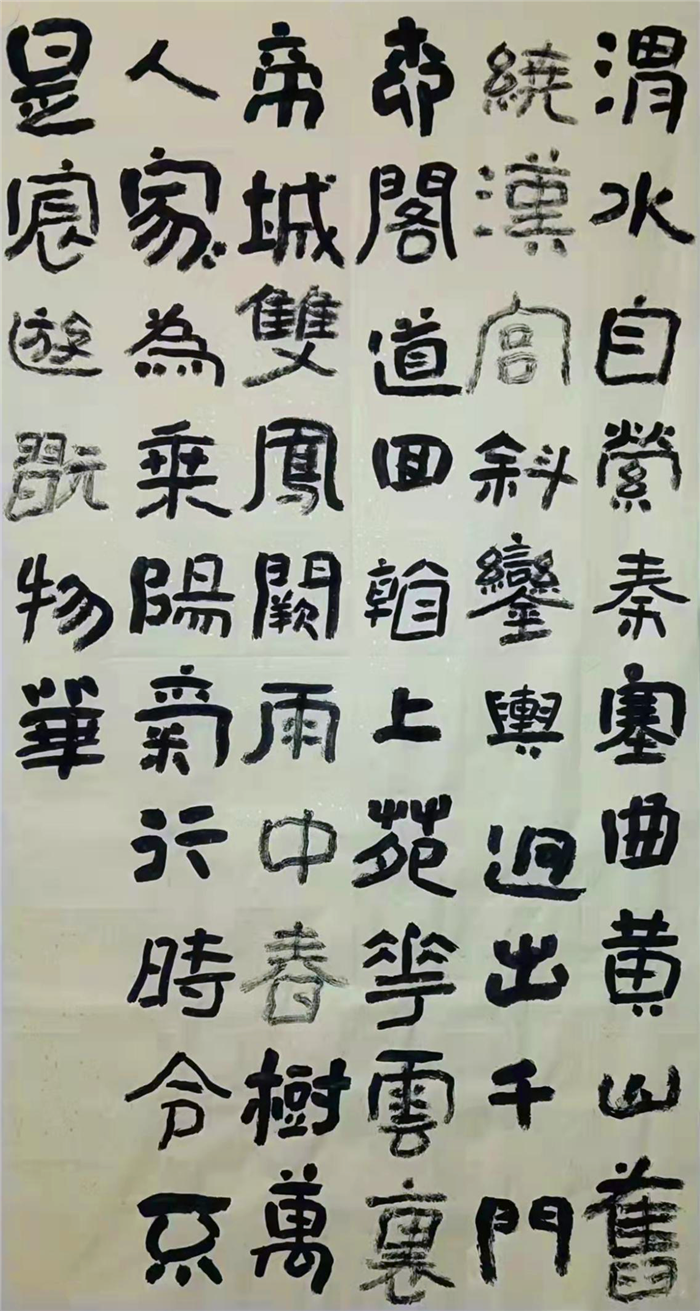 渭水自縈秦塞曲黃山舊
繞漢宮斜鑾輿迥出千門
柳閣道回看上苑花雲裏
帝城雙鳳闕雨中春樹萬
人家為乘陽氣行時令不
是宸遊翫物華